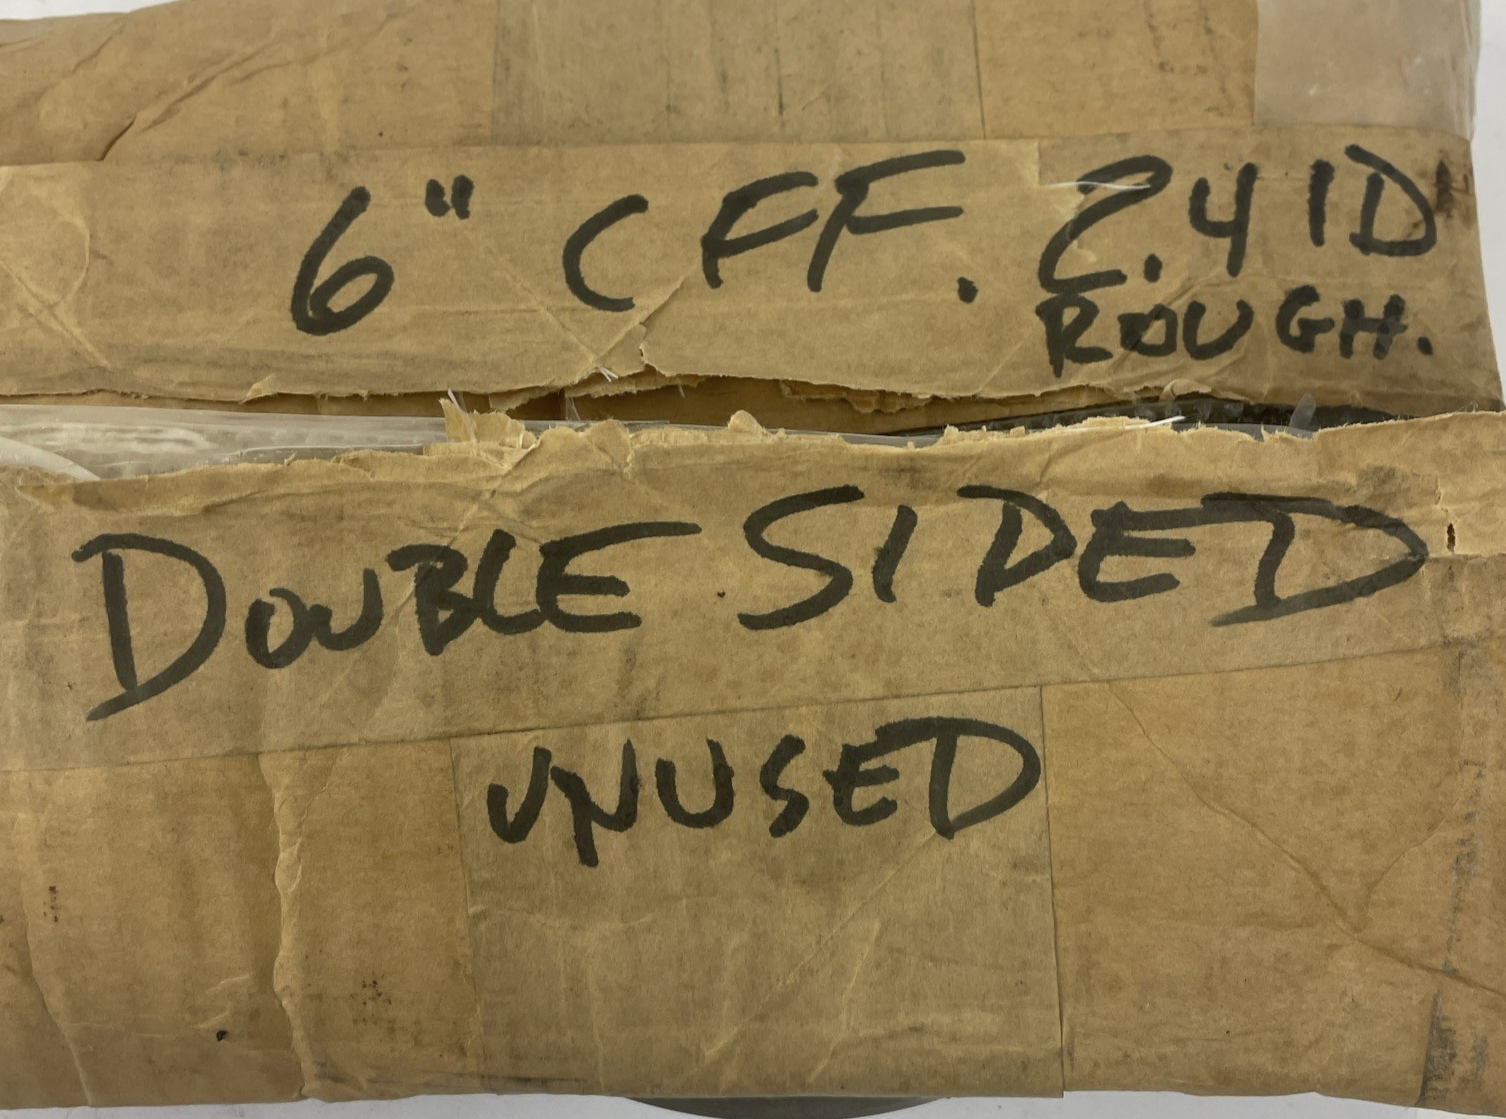 6" CFF. 2.4 ID
ROUGH.
DOUBLE SIDED
UNUSED